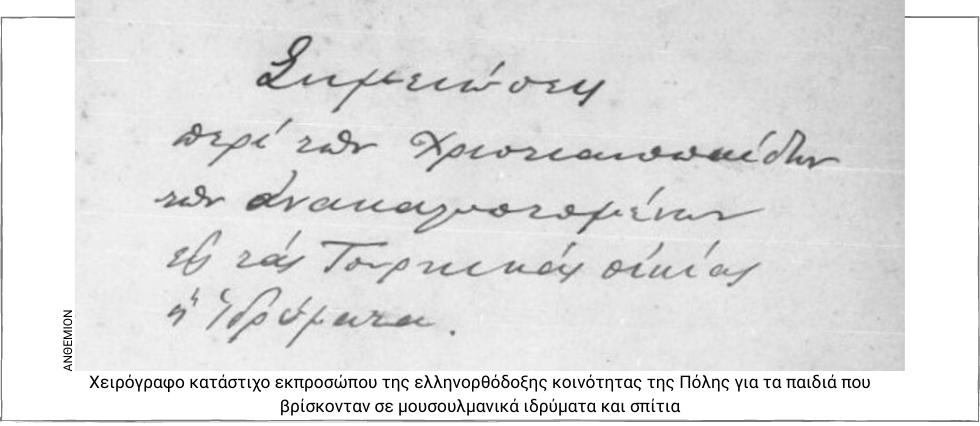 Σημειώσεις
περί των Χριστιανοπαίδων
των ανακαλυπτομένων
εις τάς Τουρκικάς οικίας
ή Ιδρύματα.
ΑΝΘΕΜΙΟΝ
Χειρόγραφο κατάστιχο εκπροσώπου της ελληνορθόδοξης κοινότητας της Πόλης για τα παιδιά που
βρίσκονταν σε μουσουλμανικά ιδρύματα και σπίτια